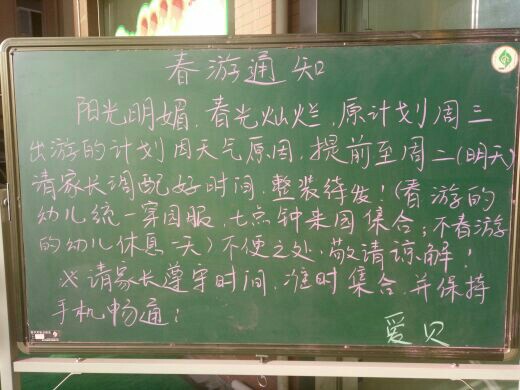 春游通知
阳光明媚，春光灿烂，原计划周三
出游的计划因天气原因，提前至周二(明天)
请家长调配好时间，整装待发！(春游的
幼儿统一穿园服，七点钟来园集合；不春游
的幼儿休息一天)不便之处，敬请谅解！
※请家长遵守时间，准时集合，并保持
手机畅通！
爱贝